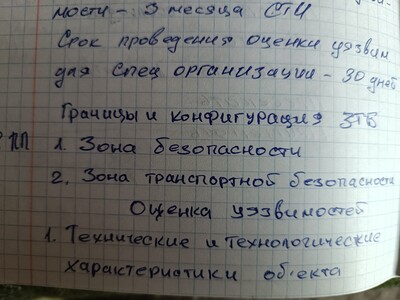 мости - 3 месяца СТИ
Срок проведения оценки уязвим
для спец организации - 30 дней
Границы и конфигурация ЗТБ
ПП 1. Зона безопасности
2. Зона транспортной безопасности
Оценка уязвимостей
1. Технические и технологические
характеристики об'екта